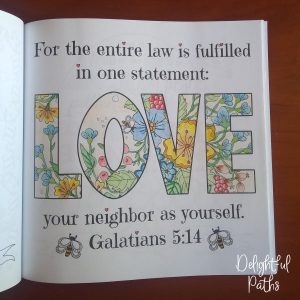 For the entire law is fulfilled
in one statement:
LOVE
your neighbor as yourself.
Galatians 5:14
Delightful
Paths